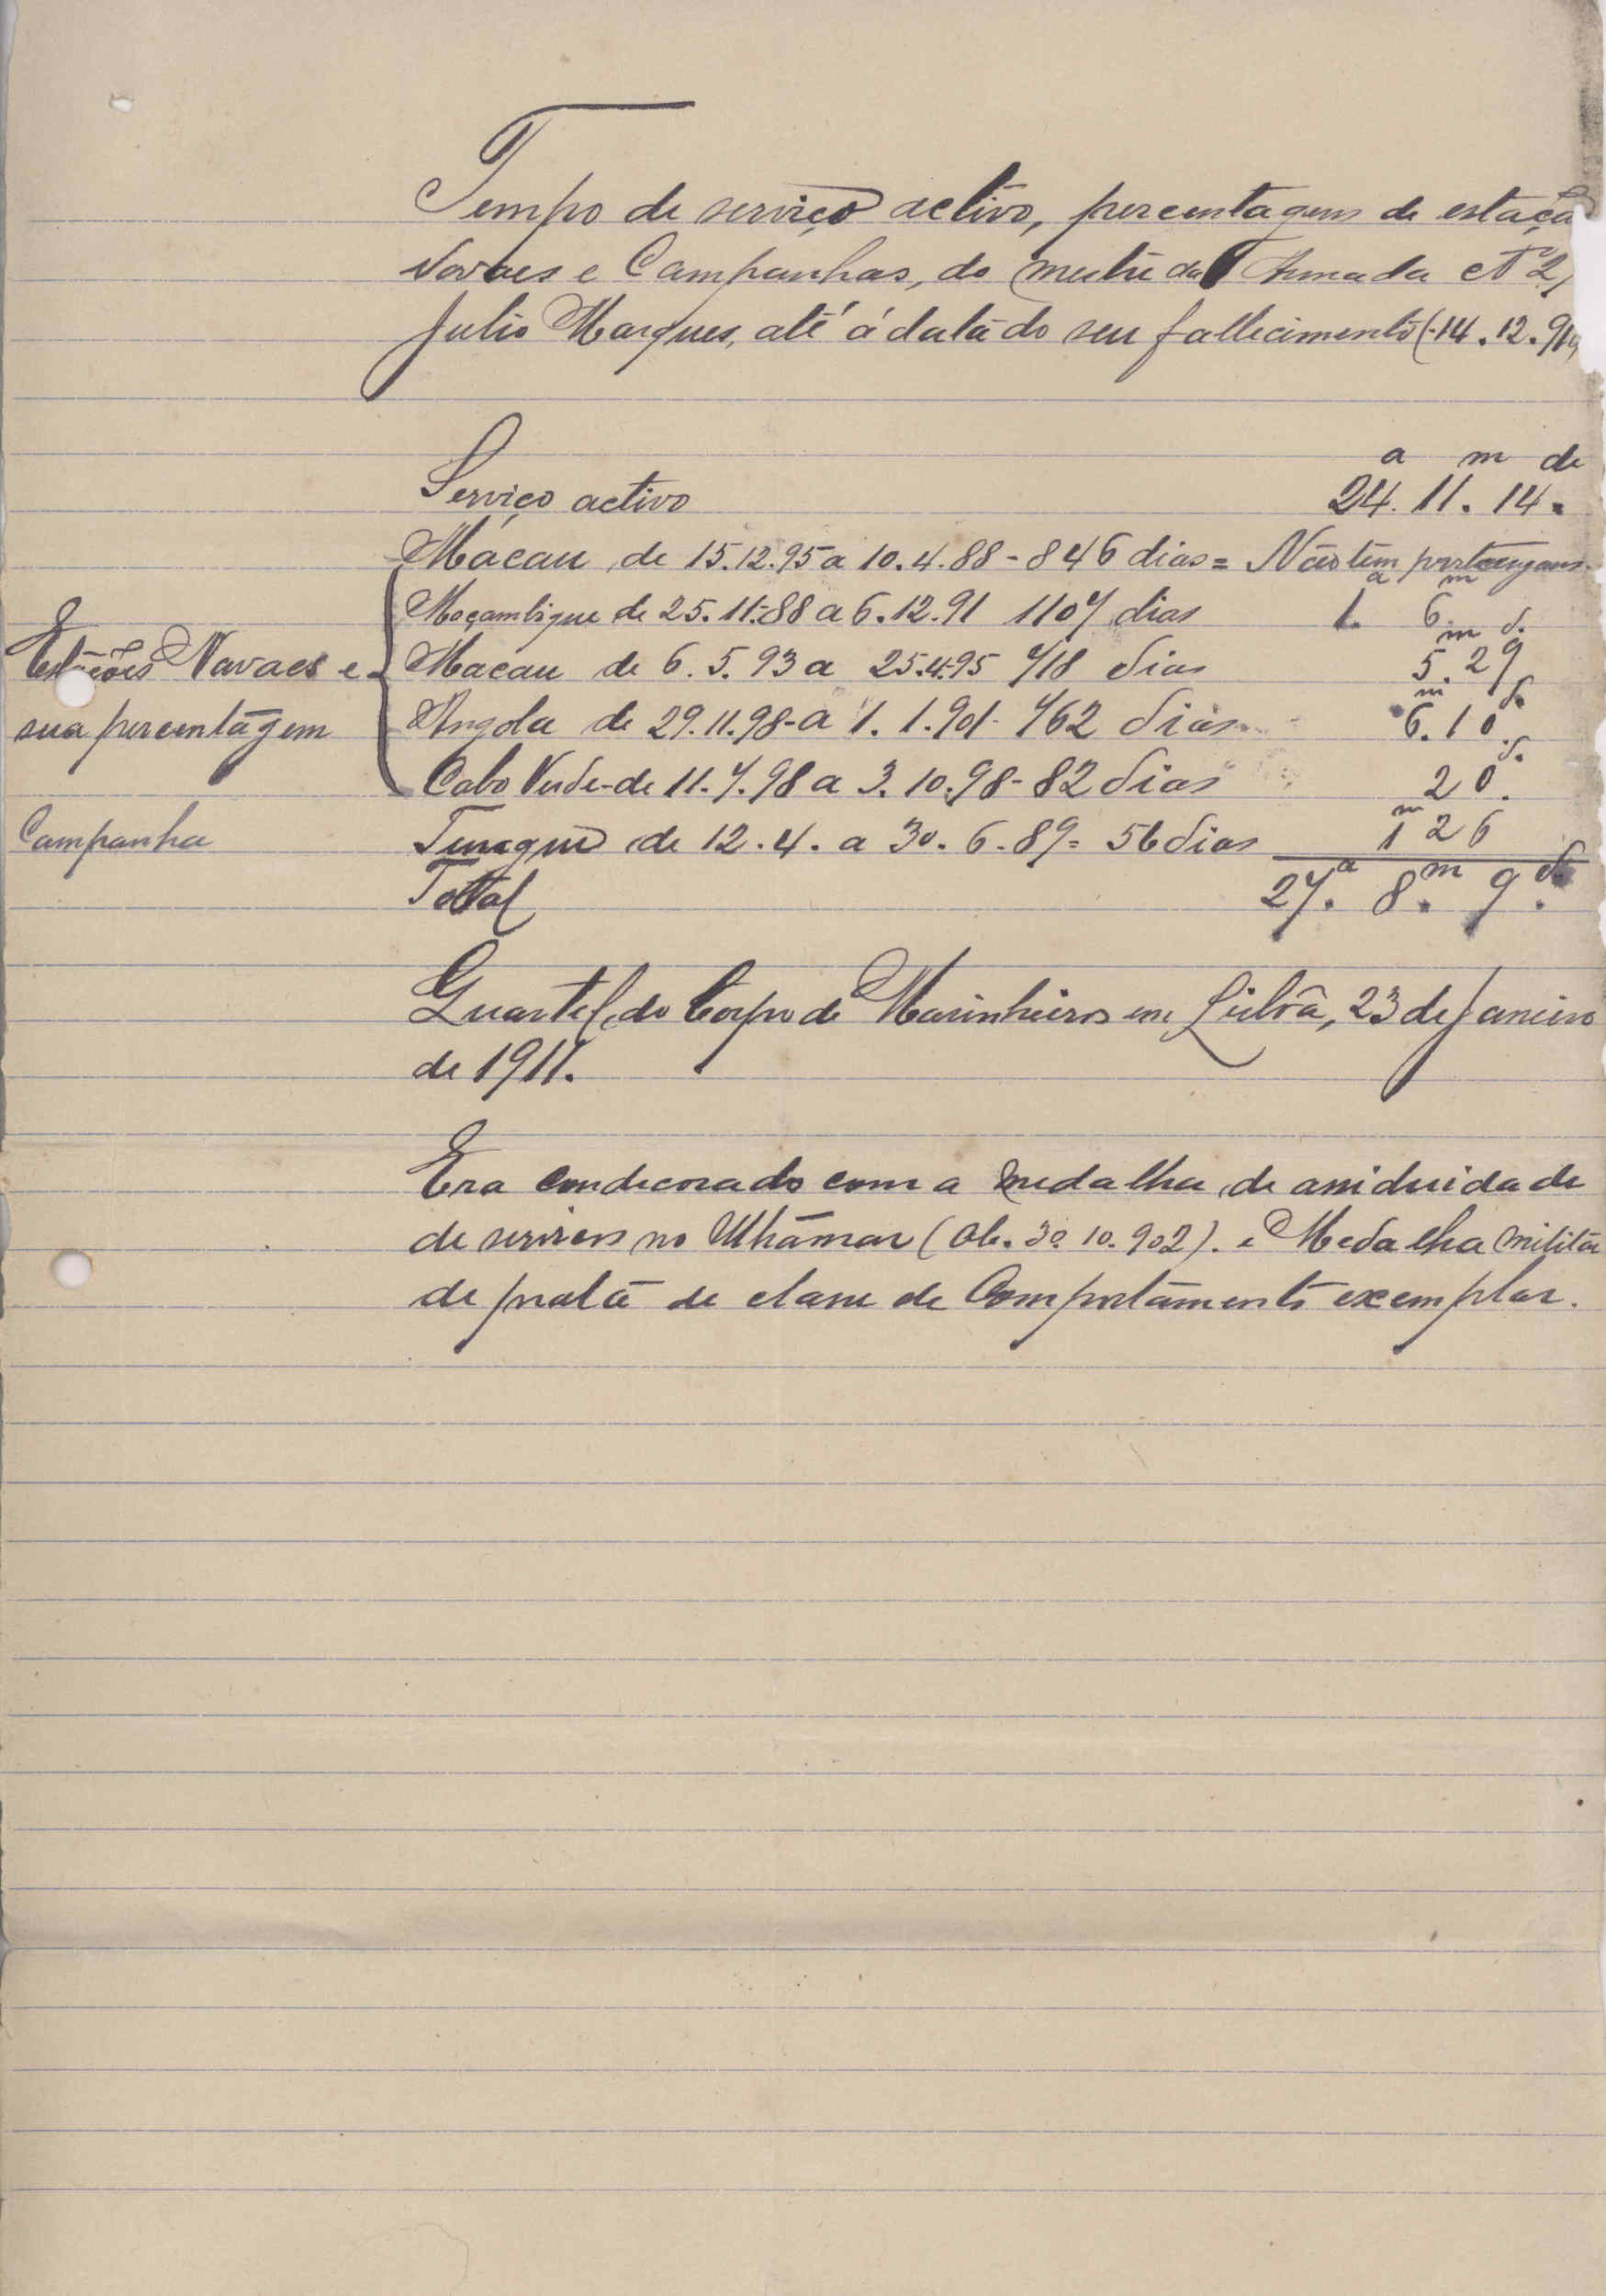 Tempo de serviço activo, percentagens de estaçõ
Navaes e Campanhas, do mestre da Armada Nº 2,
Julio Marques, até á data do seu fallecimento (14.12.910
a m d
Serviço activo 24. 11. 14.
Macau de 15.12.95 a 10.4.88 - 846 dias = Não tem
a m
Moçambique de 25.11.88 a 6.12.91 1107 dias 1. 6.
m d.
Estações Navaes e Macau de 6.5.93 a 25.4.95 718 dias 5.29
m d.
sua percentagem Angola de 29.11.98 - a 1.1.901 - 762 dias 6.10.
d.
Cabo Verde - de 11.7.98 a 3.10.98 - 82 dias 20.
m
Campanha Tungue de 12.4. a 30.6.89 = 56 dias 1 26
Total 27.a 8.m 9.d
Quartel do Corpo de Marinheiros em Lisbôa, 23 de Janeiro
de 1911.
Era condecorado com a medalha de assiduidade
de serviços no Ultramar (30.10.902). e Medalha militar
de prata de classe de Comportamento exemplar.